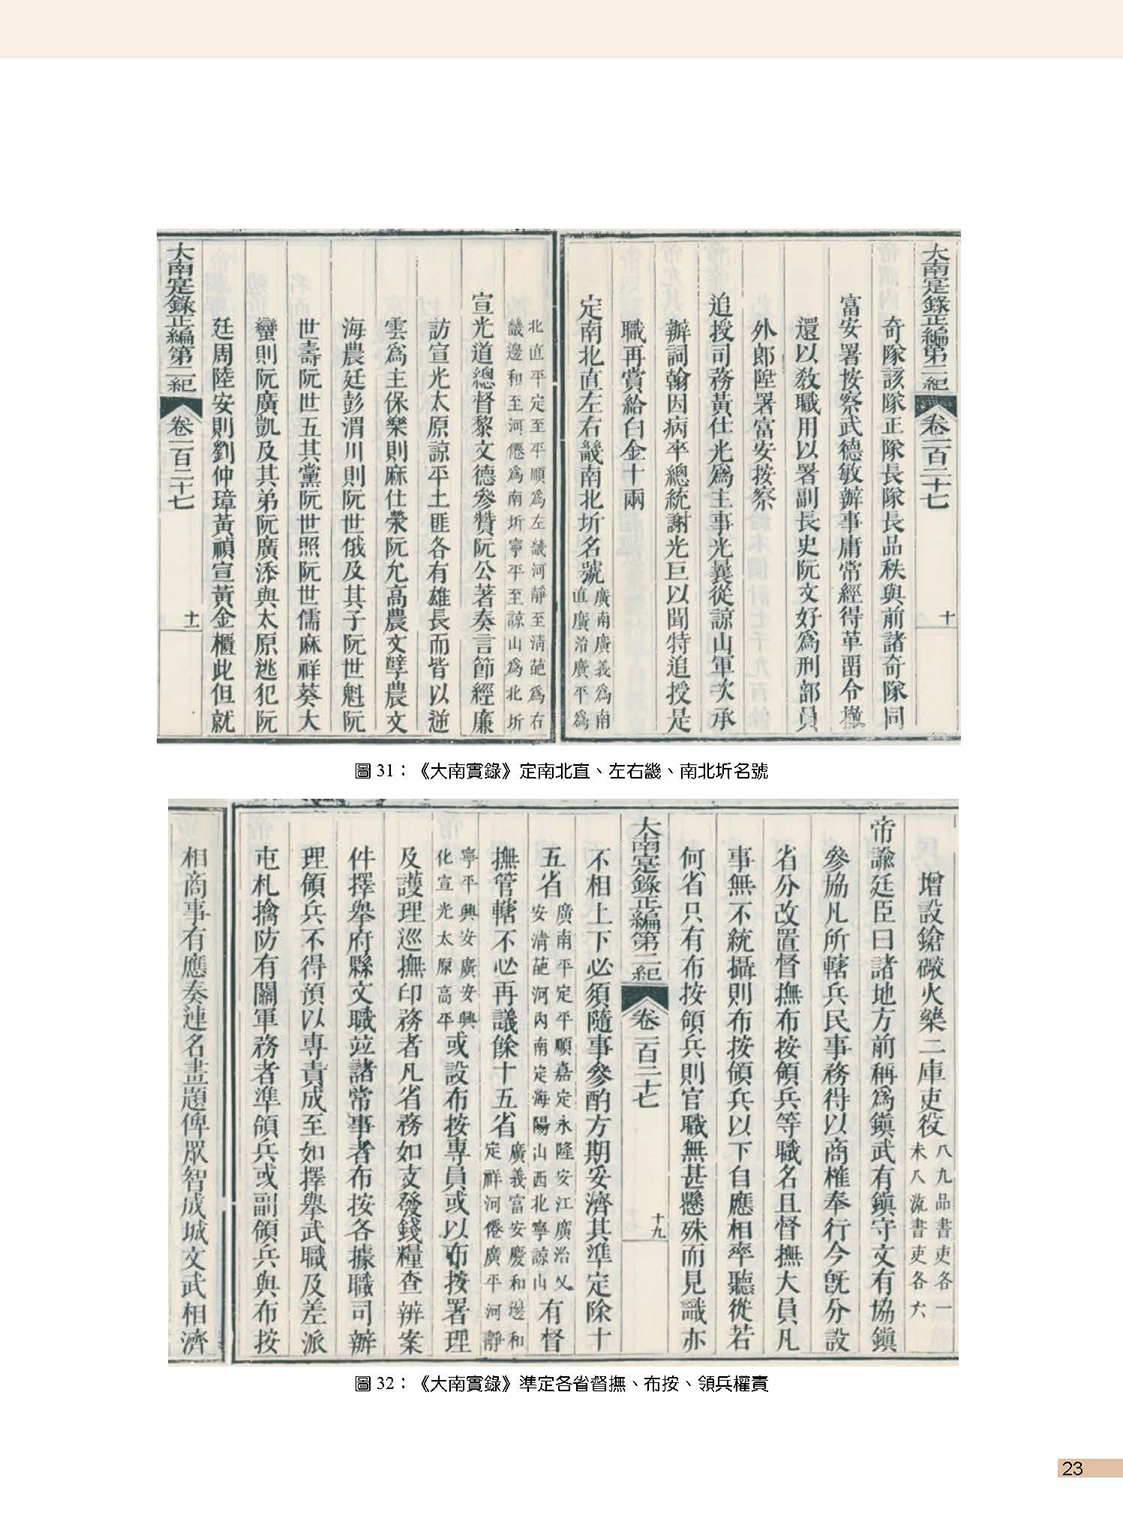 大南寔錄正編第二紀 卷一百二十七 十
奇隊該隊正隊長隊長品秩與前諸奇隊同
富安署按察武德敏辦事庸常經得革畱令撤
還以教職用以署副長史阮文好爲刑部員
外郎陞署富安按察
追授司務黃仕光爲主事光曩從諒山軍次承
辦詞翰因病卒總統謝光巨以聞特追授是
職再賞給白金十兩
定南北直左右畿南北圻名號廣南廣義爲南
直廣治廣平爲
北直平定至平順爲左畿河靜至清葩爲右
畿邊和至河僊爲南圻寧平至諒山爲北圻
宣光道總督黎文德參贊阮公著奏言節經廉
訪宣光太原諒平土匪各有雄長而皆以逆
雲爲主保樂則麻仕滎阮允高農文孽農文
海農廷彭渭川則阮世俄及其子阮世魁阮
世壽阮世五其黨阮世照阮世儒麻祥葵大
蠻則阮廣凱及其弟阮廣添與太原逃犯阮
廷周陸安則劉仲璋黃禎宣黃金櫃此但就
大南寔錄正編第二紀 卷一百二十七 十一
圖 31：《大南實錄》定南北直、左右畿、南北圻名號
增設鎗礮火藥二庫吏役八九品書吏各一
未入流書吏各六
帝諭廷臣曰諸地方前稱爲鎮武有鎮守文有協鎮
參協凡所轄兵民事務得以商榷奉行今既分設
省分改置督撫布按領兵等職名且督撫大員凡
事無不統攝則布按領兵以下自應相率聽從若
何省只有布按領兵則官職無甚懸殊而見識亦
大南寔錄正編第二紀 卷一百二十七 十九
不相上下必須隨事參酌方期妥濟其準定除十
五省廣南平定平順嘉定永隆安江廣治乂
安清葩河內南定海陽山西北寧諒山有督
撫管轄不必再議餘十五省廣義富安慶和邊和
定祥河僊廣平河靜
寧平興安廣安興
化宣光太原高平或設布按專員或以布按署理
及護理巡撫印務者凡省務如支發錢糧查辨案
件擇舉府縣文職竝諸常事者布按各據職司辦
理領兵不得預以專責成至如擇舉武職及差派
屯札擒防有關軍務者準領兵或副領兵與布按
相商事有應奏連名畫題俾眾智成城文武相濟
圖 32：《大南實錄》準定各省督撫、布按、領兵權責
23